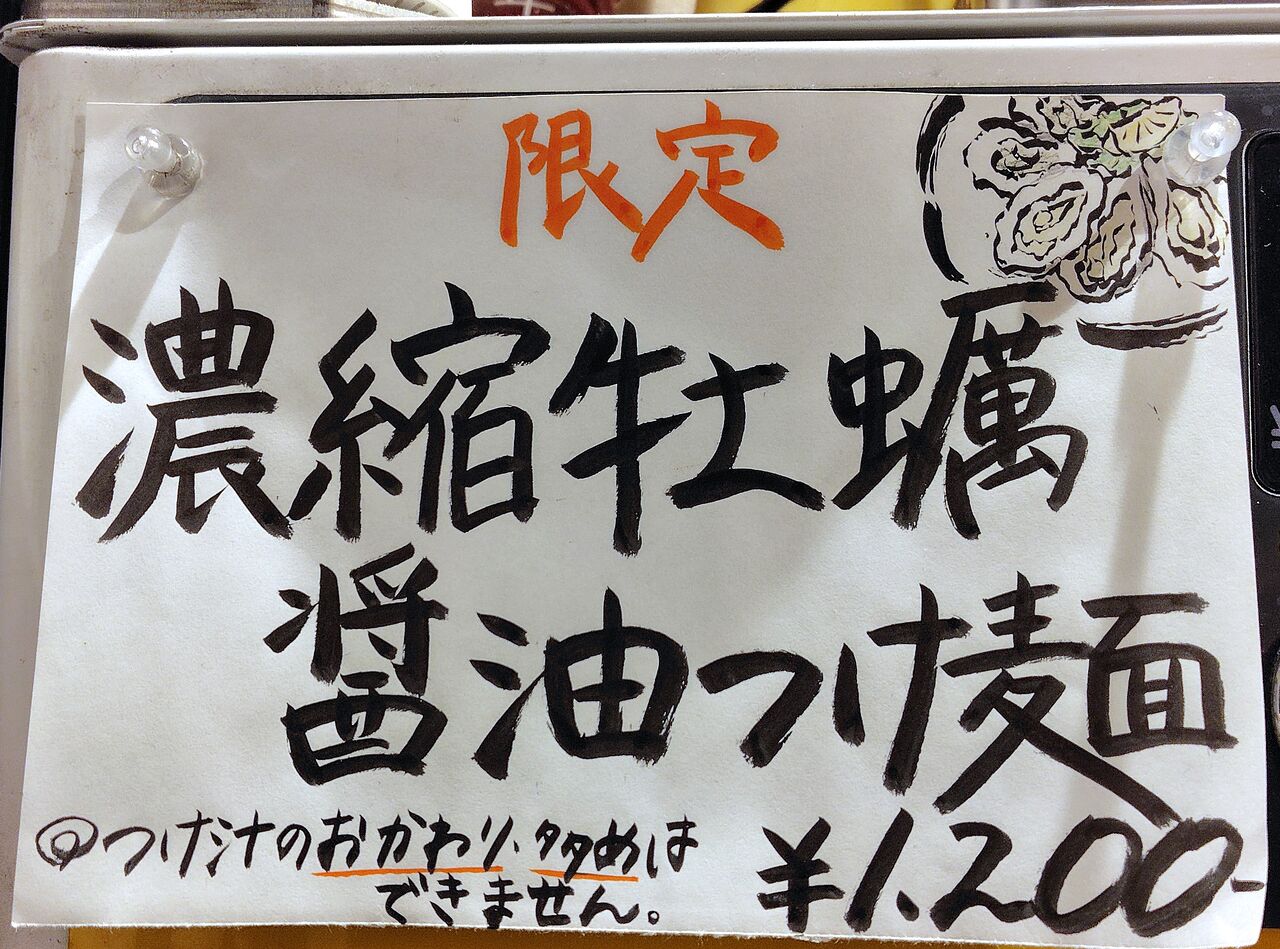 限定
濃縮牡蠣
醤油つけ麺
◎つけ汁のおかわり、多めは
できません。
¥1.200-